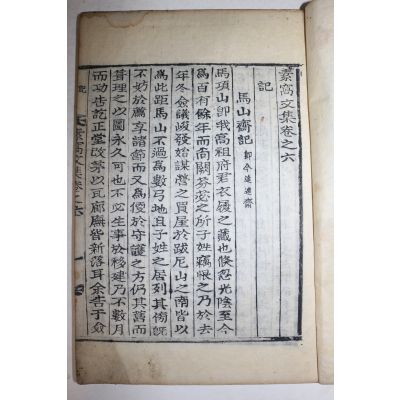 素窩文集卷之六
記
馬山齋記 卽今追遠齋
馬項山卽我高祖府君衣履之藏也倏忽光陰至今
爲百有餘年而尙闕芬苾之所子姓竊恨之乃於去
年冬僉議峻發始謀營之買屋於跋尼山之南皆以
爲此距馬山不過爲數弓地且子姓之居列其傍旣
不妨於薦享諸節而又爲便於守護之方仍其舊而
葺理之以圖永久可也不必生事於移建乃不數月
而功告訖正堂改茅以瓦廊廡皆新落耳余告于僉
記 素窩文集卷之六 一